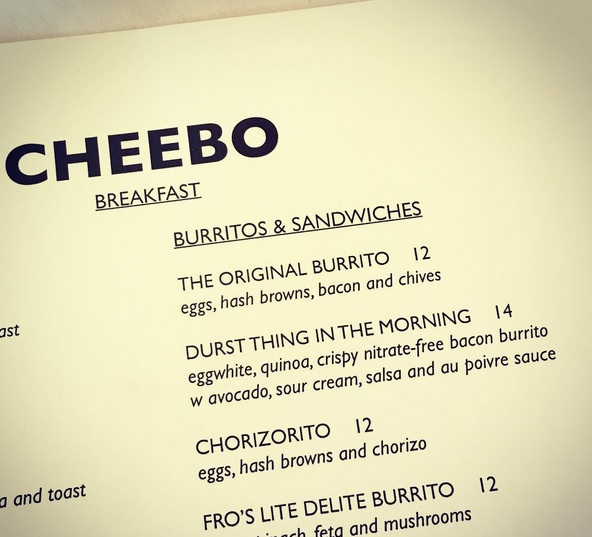 CHEEBO
BREAKFAST
BURRITOS & SANDWICHES
THE ORIGINAL BURRITO 12
eggs, hash browns, bacon and chives
DURST THING IN THE MORNING 14
eggwhite, quinoa, crispy nitrate-free bacon burrito
w avocado, sour cream, salsa and au poivre sauce
CHORIZORITO 12
eggs, hash browns and chorizo
and toast
FRO'S LITE DELITE BURRITO 12
feta and mushrooms